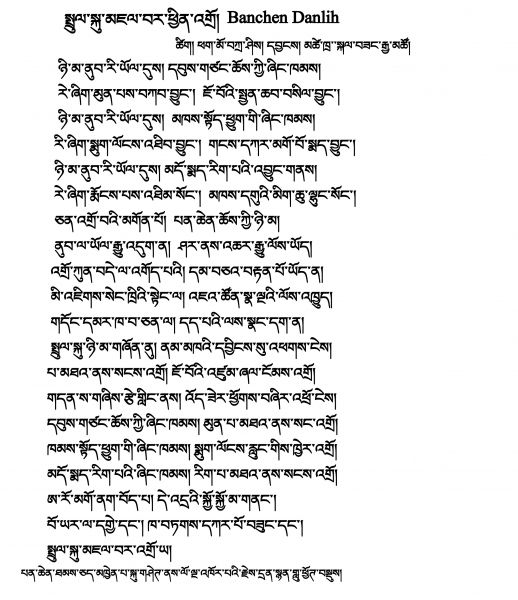 སྤྲུལ་སྐུ་མཇལ་བར་ཕྱིན་འགྲོ། Banchen Danlih
ཚིག། ཕག་མོ་བཀྲ་ཤིས། དབྱངས། མཚེ་ཁྲ་་སྐལ་བཟང་རྒྱ་མཚོ།
ཉི་མ་ནུབ་རི་ཡོལ་དུས། དབུས་གཙང་ཆོས་ཀྱི་ཞིང་ཁམས།
རེ་ཞིག་མུན་པས་བཀབ་བྱུང་། ཇོ་བོའི་སྤྱན་ཆབ་བསིལ་བྱུང་།
ཉི་མ་ནུབ་རི་ཡོལ་དུས། མཁས་སྟོད་ཕྱུག་གི་ཞིང་ཁམས།
རི་ཞིག་སྨུག་ལོངས་འཐིབ་བྱུང་། གངས་དཀར་མགོ་བོ་སྨད་བྱུང་།
ཉི་མ་ནུབ་རི་ཡོལ་དུས། མདོ་སྨད་རིག་པའི་འབྱུང་གནས།
རེ་ཞིག་རྨོངས་པས་འཐིམ་སོང་། མཁས་དགུའི་མིག་ཆུ་ལྷུང་སོང་།
ཅན་འགྲོ་བའི་མགོན་པོ། པན་ཆེན་ཆོས་ཀྱི་ཉི་མ།
ནུབ་ལ་ཡོལ་རྒྱུ་འདུག་ན། ཤར་ནས་འཆར་རྒྱུ་ལོས་ཡོད།
འགྲོ་ཀུན་བདེ་ལ་འགོད་པའི། དམ་བཅའ་བརྟན་པོ་ཡོད་ན།
མི་འཇིགས་སེང་ཁྲིའི་སྟེང་ལ། འཇའ་ཚོན་སྣ་ལྔའི་ལོས་འཁྱུད།
གདོང་དམར་ཁ་བ་ཅན་ལ། དད་པའི་ལས་སྣང་དག་ན།
སྤྲུལ་སྐུ་ཉི་མ་གཞོན་ནུ། ནམ་མཁའི་དབྱིངས་སུ་འཕགས་ངེས།
པ་མཐའ་ནས་སངས་འགྲོ། ཇོ་བོའི་འཛུམ་ཞལ་ངོམས་འགྲོ།
གདན་ས་གཞིས་རྩེ་གླིང་ནས། འོད་ཟེར་ཕྱོགས་བཞིར་འཕྲོ་ངེས།
དབུས་གཙང་ཆོས་ཀྱི་ཞིང་ཁམས། མུན་པ་མཐའ་ནས་སང་འགྲོ།
ཁམས་སྟོད་ཕྱུག་གི་ཞིང་ཁམས། སྨུག་ལོངས་རླུང་གིས་ཁྱེར་འགྲོ།
མདོ་སྨད་རིག་པའི་ཞིང་ཁམས། རིག་པ་མཐའ་ནས་སངས་འགྲོ།
ཨ་རོ་མགོ་ནག་བོད་པ། དེ་འདྲའི་སྐྱོ་སྐྱོ་མ་གནང་།
བོ་ཡར་ལ་དགྱེ་དང་། ཁ་བཏགས་དཀར་པོ་བཟུང་དང་།
སྤྲུལ་སྐུ་མཇལ་བར་འགྲོ་ཡ།
པན་ཆེན་ཐམས་ཅད་མཁྱེན་པ་སྐུ་གཤེཊ་ནས་ལོ་ལྔ་འཁོར་བའི་རྗེས་དྲན་སྙན་གླུ་ཕྱོཊ་བསྡུས།